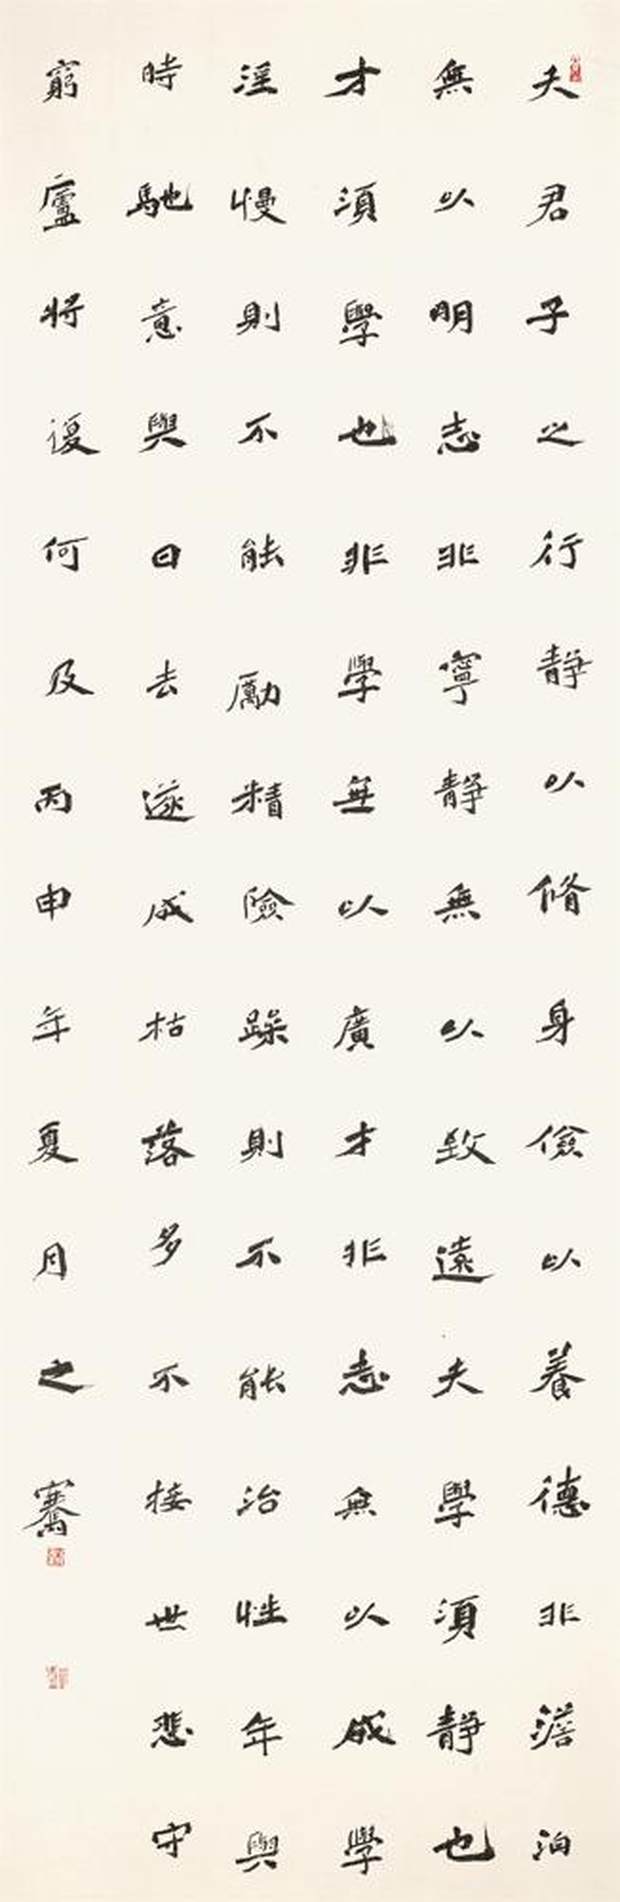 夫君子之行静以脩身儉以養德非澹泊
無以明志非寧静無以致遠夫學湏静也
才湏學也非學無以廣才非志無以成學
淫慢則不能勵精險躁則不能治性年與
時馳意與日去遂成枯落多不接世悲守
窮廬將復何及丙申年夏月之騫